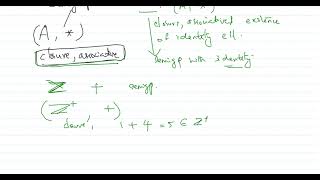 (A, *)
closure, associative
closure, associative, existence
of identity ell.
semigp with identity.
Z + semigp.
(Z⁺ +)
closure', 1 + 4 = 5 ∈ Z⁺